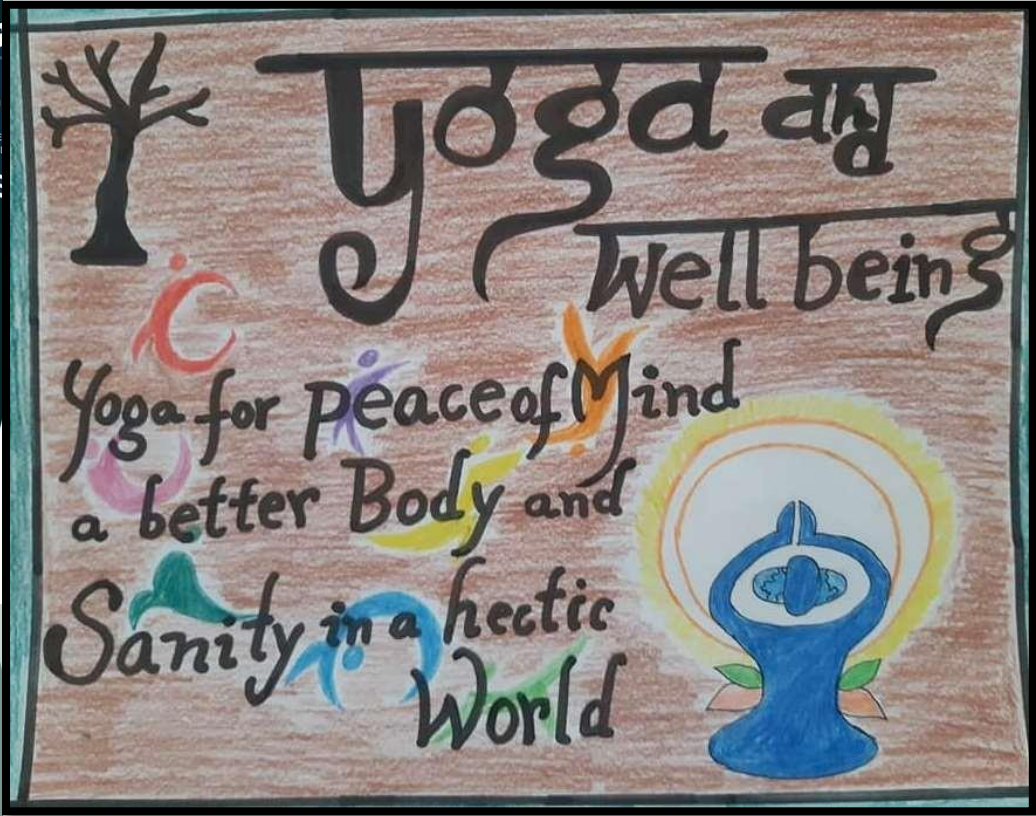 Yoga and
well being
Yoga for peace of Mind
a better Body and
Sanity in a hectic
World